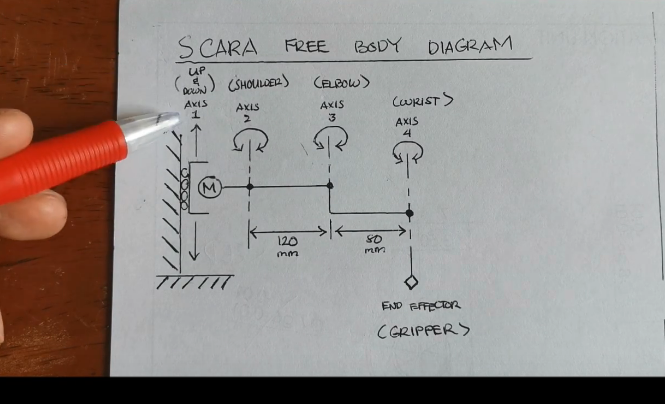 SCARA FREE BODY DIAGRAM
(UP & DOWN)
AXIS 1
(SHOULDER)
AXIS 2
(ELBOW)
AXIS 3
(WRIST)
AXIS 4
M
120 mm
80 mm
END EFFECTOR
(GRIPPER)